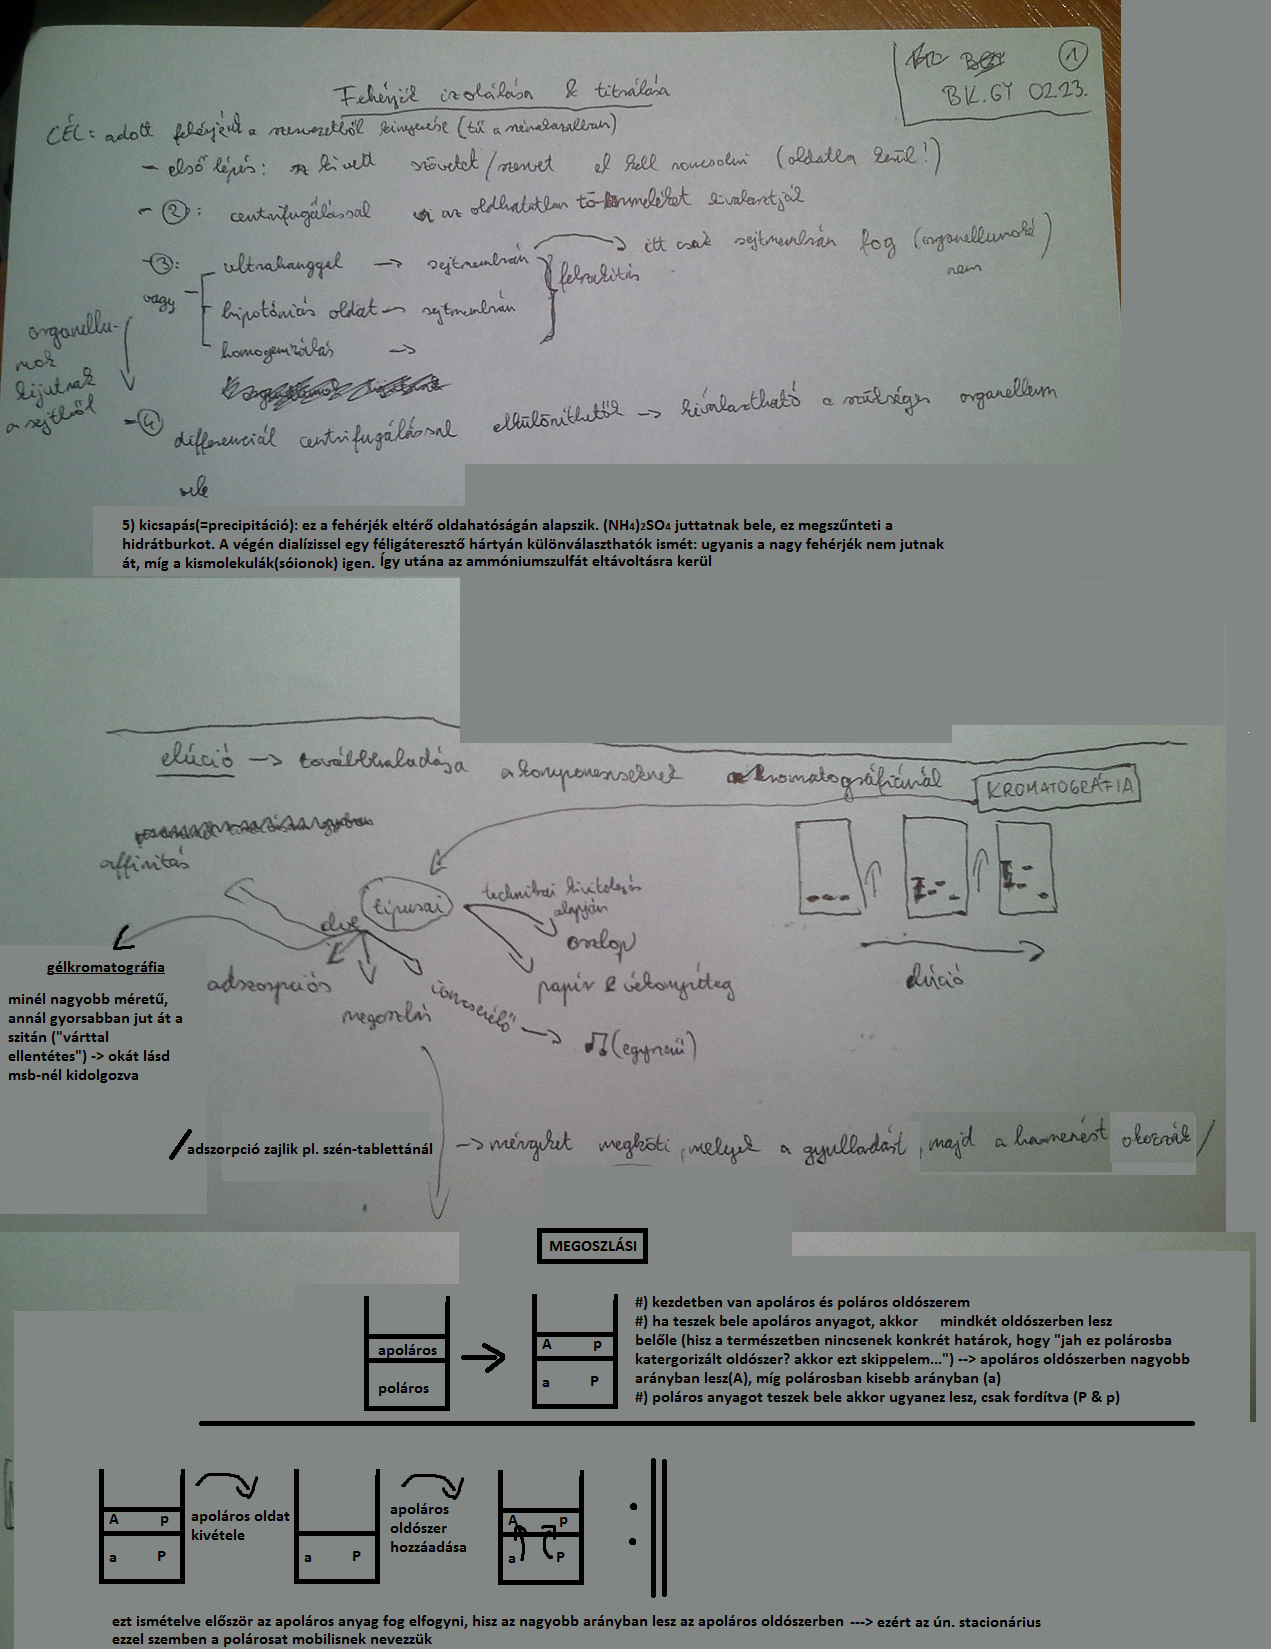 1
BK.GY 02.23.
Fehérjék izolálása & titrálása
CÉL: adott fehérjének a szervezetből kinyerése (tű a szénakazalban)
- első lépés: a kivett szövetet/szervet el kell roncsolni (oldatba kerül!)
- 2: centrifugálással az oldhatatlan törmeléket kiválasztják
- 3: ultrahanggal → sejtmembrán → itt csak sejtmembrán fog (organellumoké nem)
vagy
hipotóniás oldat → sejtmembrán
felszakítás
homogenizálás →
organellumok kijutnak a sejtből
- 4 differenciál centrifugálással elkülöníthetők → kiválasztható a szükséges organellum
5) kicsapás(=precipitáció): ez a fehérjék eltérő oldahatóságán alapszik. (NH4)2SO4 juttatnak bele, ez megszűnteti a
hidrátburkot. A végén dialízissel egy féligáteresztő hártyán különválaszthatók ismét: ugyanis a nagy fehérjék nem jutnak
át, míg a kismolekulák(sóionok) igen. Így utána az ammóniumszulfát eltávoltásra kerül
elúció → továbbhaladása a komponenseknek kromatográfiánál
KROMATOGRÁFIA
affinitás
típusai
technikai kivitelezés alapján
elve
oszlop
papír & vékonyréteg
elúció
gélkromatográfia
minél nagyobb méretű,
annál gyorsabban jut át a
szitán ("várttal
ellentétes") -> okát lásd
msb-nél kidolgozva
adszorpciós
megoszlás
ioncserélő → ♫ (egyszerű)
/adszorpció zajlik pl. szén-tablettánál → mérgeket megköti, melyek a gyulladást, majd a hasmenést okozzák/
MEGOSZLÁSI
apoláros
poláros
A p
a P
#) kezdetben van apoláros és poláros oldószerem
#) ha teszek bele apoláros anyagot, akkor mindkét oldószerben lesz
belőle (hisz a természetben nincsenek konkrét határok, hogy "jah ez polárosba
katergorizált oldószer? akkor ezt skippelem...") --> apoláros oldószerben nagyobb
arányban lesz(A), míg polárosban kisebb arányban (a)
#) poláros anyagot teszek bele akkor ugyanez lesz, csak fordítva (P & p)
A p
a P
apoláros oldat
kivétele
a P
apoláros
oldószer
hozzáadása
A p
a P
ezt ismételve először az apoláros anyag fog elfogyni, hisz az nagyobb arányban lesz az apoláros oldószerben ---> ezért az ún. stacionárius
ezzel szemben a polárosat mobilisnek nevezzük